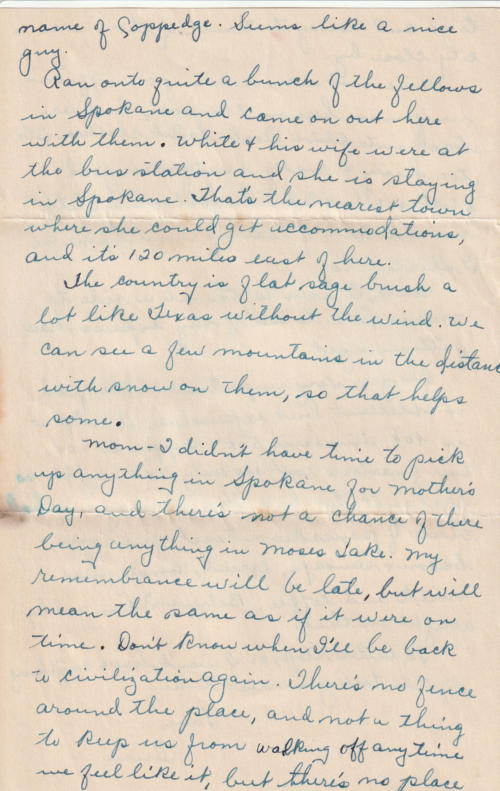 name of Soppedge. Seems like a nice
guy.
Ran onto quite a bunch of the fellows
in Spokane and came on out here
with them. White & his wife were at
the bus station and she is staying
in Spokane. That's the nearest town
where she could get accommodations,
and it's 120 miles east of here.
The country is flat sage brush a
lot like Texas without the wind. We
can see a few mountains in the distanc
with snow on them, so that helps
some.
Mom - I didn't have time to pick
up anything in Spokane for Mother's
Day, and there's not a chance of there
being anything in Moses Lake. My
remembrance will be late, but will
mean the same as if it were on
time. Don't know when I'll be back
to civilization again. There's no fence
around the place, and not a thing
to keep us from walking off anytime
we feel like it, but there's no place